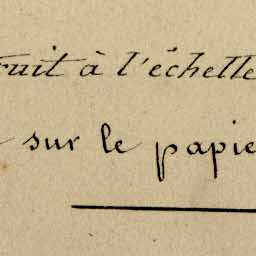 ruit à l'échelle
sur le papie